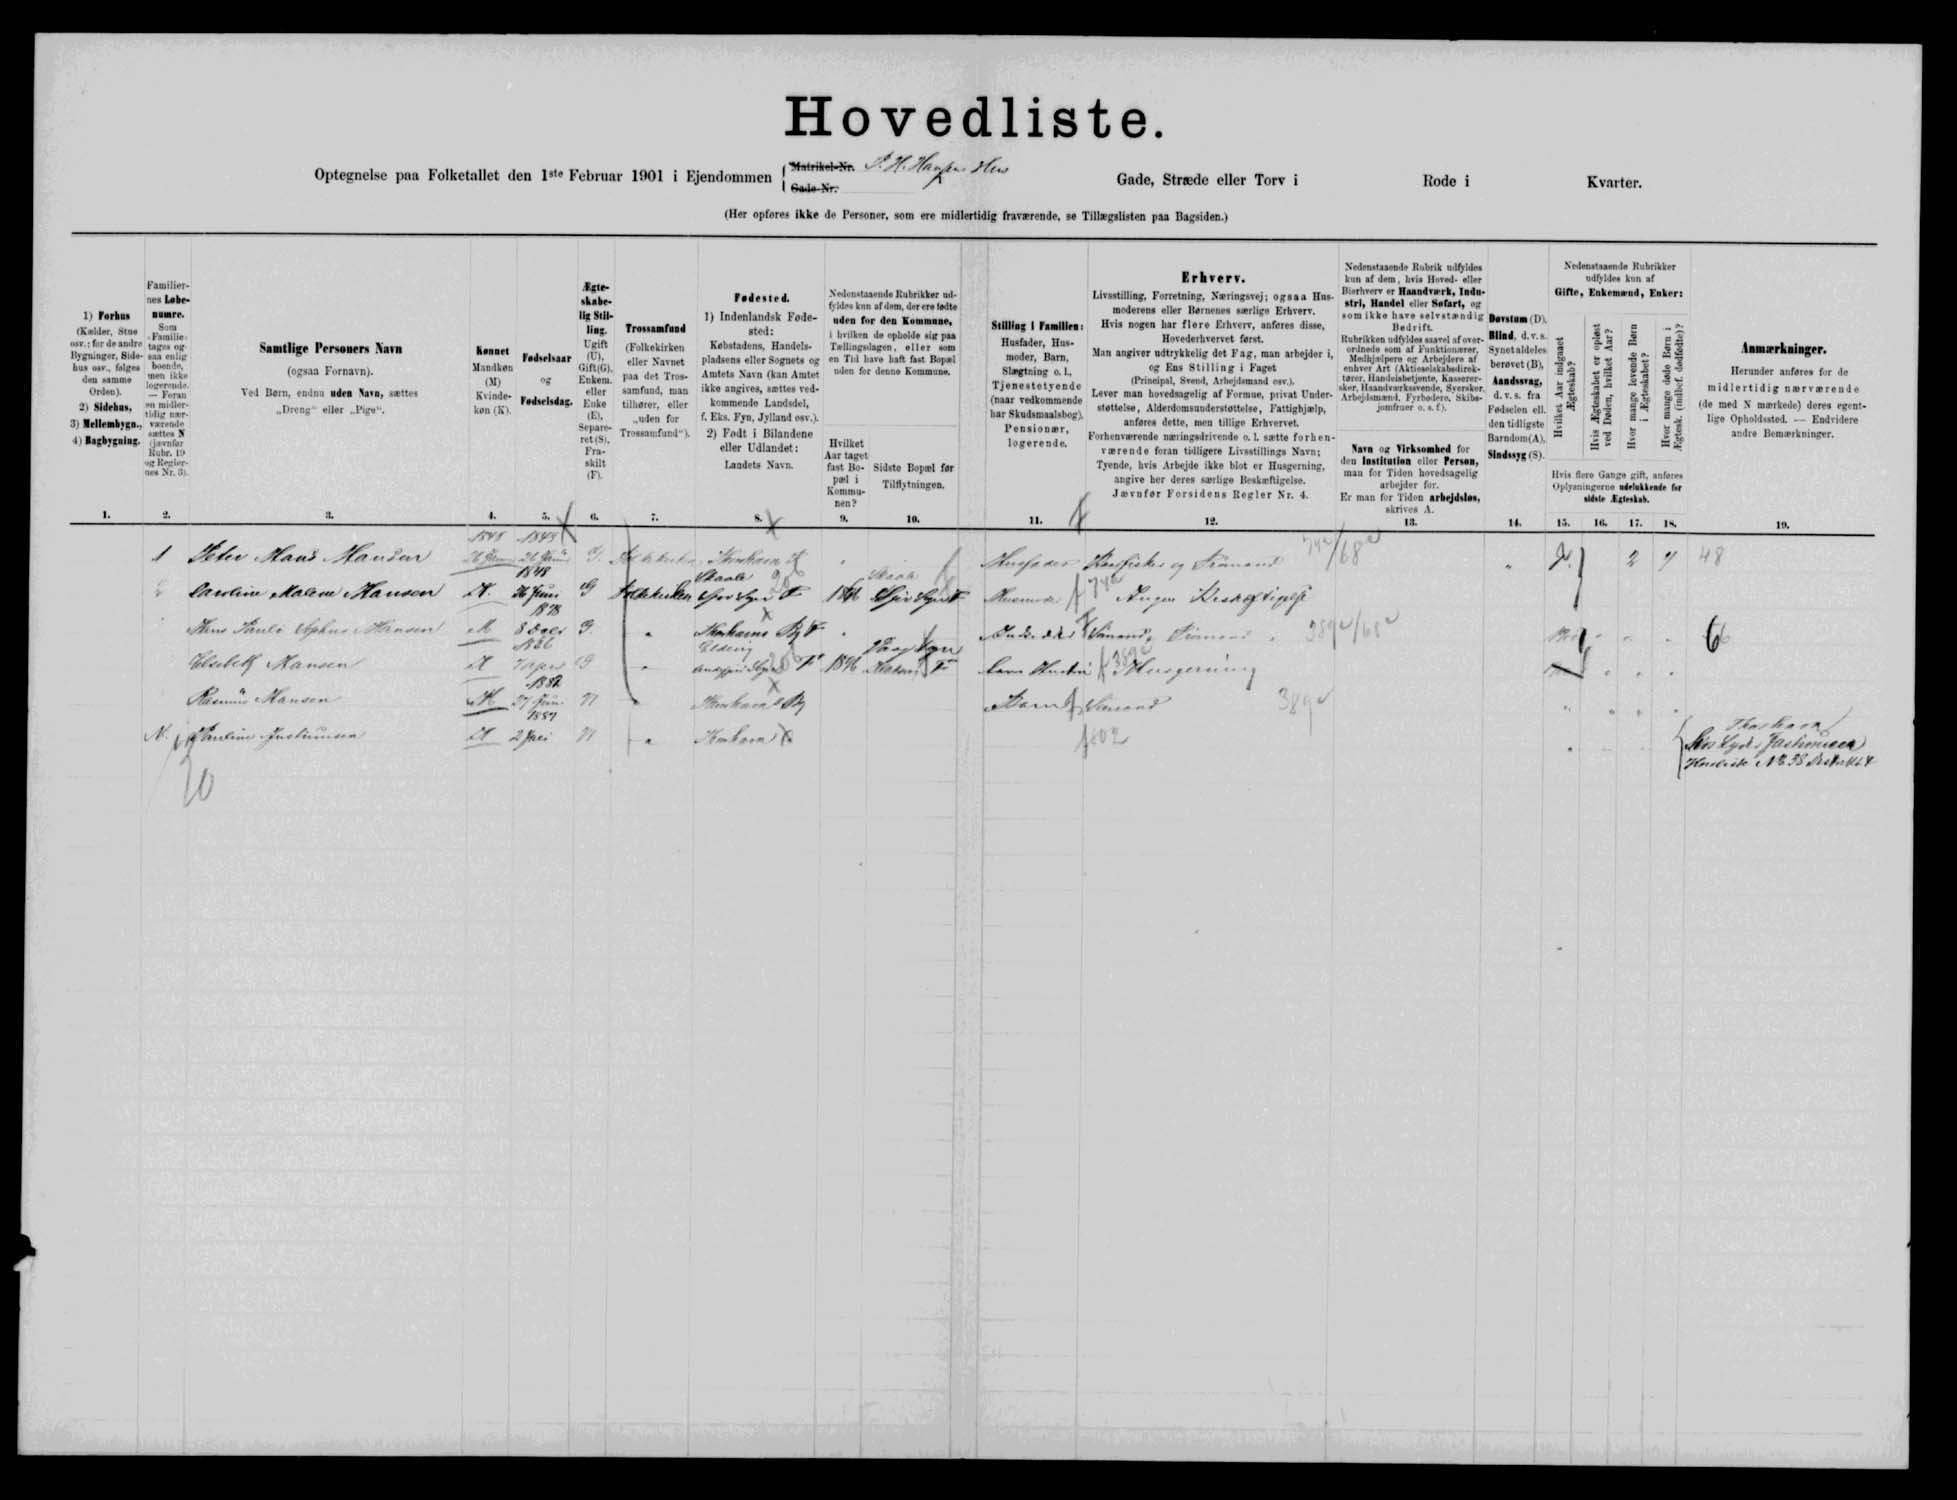 Hovedliste.
Optegnelse paa Folketallet den 1ste Februar 1901 i Ejendommen { Matrikel-Nr. P. H. Hansens Hus
Gade-Nr.
Gade, Stræde eller Torv i Rode i Kvarter.
(Her opføres ikke de Personer, som ere midlertidig fraværende, se Tillægslisten paa Bagsiden.)
1) Forhus
(Kælder, Stue
osv.; for de andre
Bygninger, Side-
hus osv., følges
den samme
Orden).
2) Sidehus,
3) Mellembygn.,
4) Bagbygning.
1.
Familier-
nes Løbe-
numre.
Som
„Familie“
tages og-
saa enlig
boende,
men ikke
logerende.
— Foran
en midler-
tidig nær-
værende
sættes N
(jævnfør
Rubr. 19
og Regler-
nes Nr. 3).
2.
Samtlige Personers Navn
(ogsaa Fornavn).
Ved Børn, endnu uden Navn, sættes
„Dreng“ eller „Pige“.
3.
Kønnet
Mandkøn
(M)
Kvinde-
køn (K).
4.
Fødselsaar
og
Fødselsdag.
5.
Ægte-
skabe-
lig Stil-
ling.
Ugift
(U),
Gift(G),
Enkem.
eller
Enke
(E),
Separe-
ret (S),
Fra-
skilt
(F).
6.
Trossamfund
(Folkekirken
eller Navnet
paa det Tros-
samfund, man
tilhører, eller
„uden for
Trossamfund“).
7.
Fødested.
1) Indenlandsk Føde-
sted:
Købstadens, Handels-
pladsens eller Sognets og
Amtets Navn (kan Amtet
ikke angives, sættes ved-
kommende Landsdel,
f. Eks. Fyn, Jylland osv.).
2) Født i Bilandene
eller Udlandet:
Landets Navn.
8.
Nedenstaaende Rubrikker ud-
fyldes kun af dem, der ere fødte
uden for den Kommune,
i hvilken de opholde sig paa
Tællingsdagen, eller som
en Tid have haft fast Bopæl
uden for denne Kommune.
Hvilket
Aar taget
fast Bo-
pæl i
Kommu-
nen?
9.
Sidste Bopæl før
Tilflytningen.
10.
Stilling i Familien:
Husfader, Hus-
moder, Barn,
Slægtning o. l.,
Tjenestetyende
(naar vedkommende
har Skudsmaalsbog),
Pensionær,
logerende.
11.
Erhverv.
Livsstilling, Forretning, Næringsvej; ogsaa Hus-
moderens eller Børnenes særlige Erhverv.
Hvis nogen har flere Erhverv, anføres disse,
Hovederhvervet først.
Man angiver udtrykkelig det Fag, man arbejder i,
og Ens Stilling i Faget
(Principal, Svend, Arbejdsmand osv.).
Lever man hovedsagelig af Formue, privat Under-
støttelse, Alderdomsunderstøttelse, Fattighjælp,
anføres dette, men tillige Erhvervet.
Forhenværende næringsdrivende o. l. sætte forhen-
værende foran tidligere Livsstillings Navn;
Tyende, hvis Arbejde ikke blot er Husgerning,
angive her deres særlige Beskæftigelse.
Jævnfør Forsidens Regler Nr. 4.
12.
Nedenstaaende Rubrik udfyldes
kun af dem, hvis Hoved- eller
Bierhverv er Haandværk, Indu-
stri, Handel eller Søfart, og
som ikke have selvstændig
Bedrift.
Rubrikken udfyldes saavel af over-
ordnede som af Funktionærer,
Medhjælpere og Arbejdere af
enhver Art (Aktieselskabsdirek-
tører, Handelsbetjente, Kasserer-
sker, Haandværkssvende, Syersker,
Arbejdsmænd, Fyrbødere, Skibs-
jomfruer o. s. f.).
Navn og Virksomhed for
den Institution eller Person,
man for Tiden hovedsagelig
arbejder for.
Er man for Tiden arbejdsløs,
skrives A.
13.
Døvstum (D),
Blind, d. v. s.
Synet aldeles
berøvet (B),
Aandssvag,
d. v. s. fra
Fødselen ell.
den tidligste
Barndom(A),
Sindssyg (S).
14.
Nedenstaaende Rubrikker
udfyldes kun af
Gifte, Enkemænd, Enker:
Hvilket Aar indgaaet
Ægteskab?
Hvis Ægteskabet er opløst
ved Døden, hvilket Aar?
Hvor mange levende Børn
i Ægteskabet?
Hvor mange døde Børn i
Ægtesk. (indbef. dødfødte)?
Hvis flere Gange gift, anføres
Oplysningerne udelukkende for
sidste Ægteskab.
15. 16. 17. 18.
Anmærkninger.
Herunder anføres for de
midlertidig nærværende
(de med N mærkede) deres egent-
lige Opholdssted. — Endvidere
andre Bemærkninger.
19.
1 Peter Hans Hansen 1849 G. Folkekirken Thorshavn Husfader og Tømmermand 68a 2 7 48
2 Caroline Malene Hansen K. 1848 26 Juni G Folkekirken Skaale F 1846 Skaale Husmoder 74a Ingen Beskæftigelse
Hans Pauli Sophus Hansen M 1878 8 G. Thorshavns By F Sømand 389a/68a 6
Elsebeth Hansen K 1876 G 1896 F Husgerning
Rasmus Hansen M 1882 27 Juni U Thorshavns By Barn Sømand 389a
N. Pauline Justinussen K 1887 2 Juli U Thorshavn 802 Thorshavn
Justinussen
Husliste No 38
20